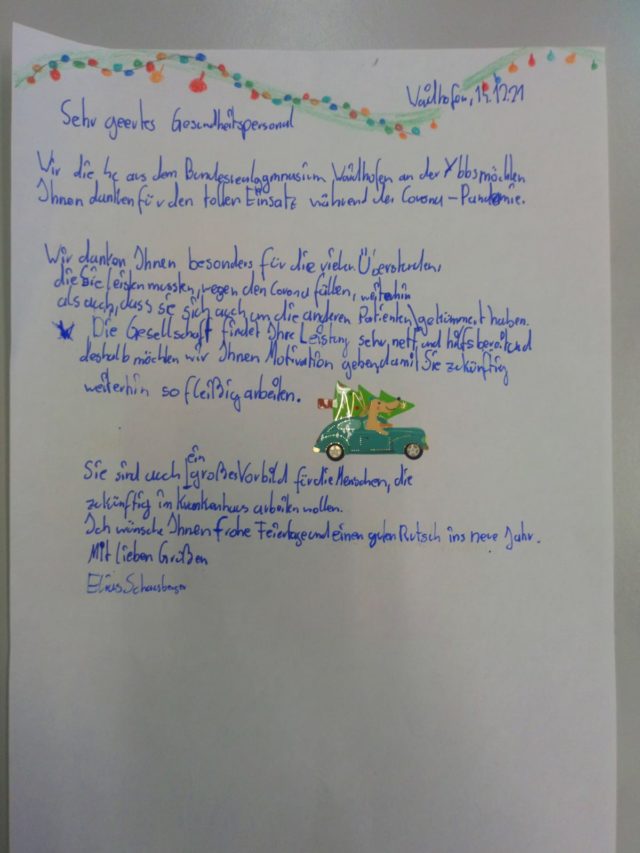 Waidhofen, 14.12.21
Sehr geertes Gesundheitspersonal
Wir die 4c aus dem Bundesrealgymnasium Waidhofen an der Ybbs möchten
Ihnen danken für den tollen Einsatz während der Corona-Pandemie.
Wir danken Ihnen besonders für die vielen Überstunden,
die Sie leisten mussten, wegen den Corona fällen, weiterhin
als auch, dass sie sich auch um die anderen Patienten gekümmert haben.
Die Gesellschaft findet Ihre Leistung sehr nett und hilfsbereit und
deshalb möchten wir Ihnen Motivation geben damit Sie zukünftig
weiterhin so fleißig arbeiten.
Sie sind auch ein großes Vorbild für die Menschen, die
zukünftig im Krankenhaus arbeiten wollen.
Ich wünsche Ihnen frohe Feiertage und einen guten Rutsch ins neue Jahr.
Mit lieben Grüßen
Elias Schausberger